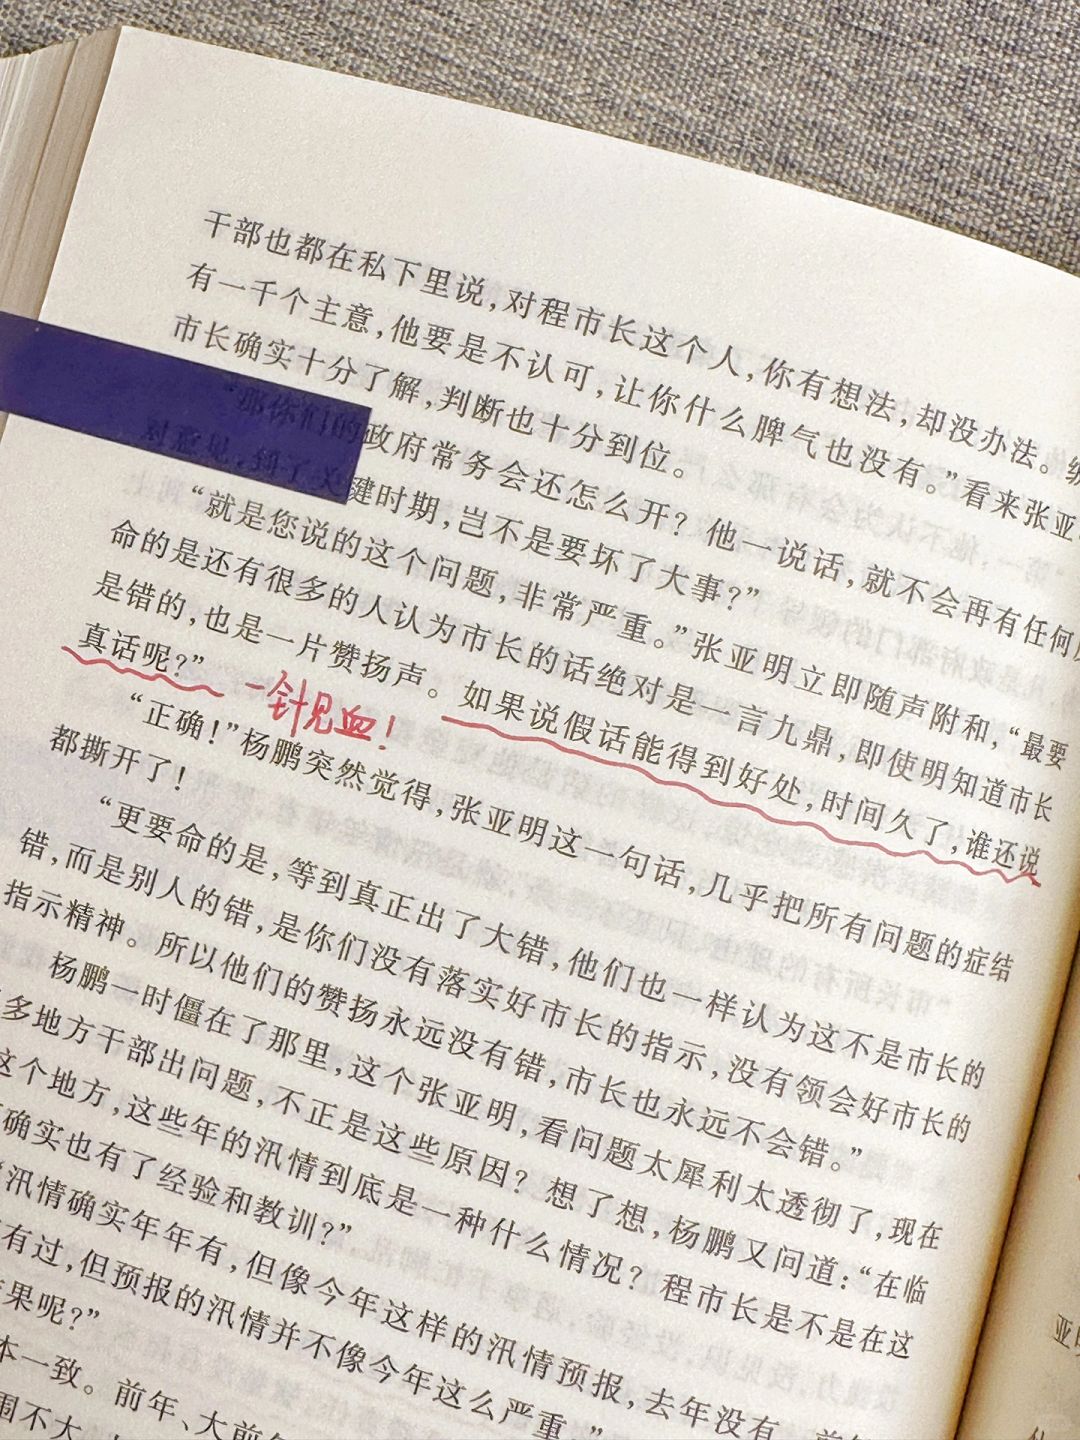 干部也都在私下里说，对程市长这个人，你有想法，却没办法。
有一千个主意，他要是不认可，让你什么脾气也没有。”看来张亚
市长确实十分了解，判断也十分到位。
“那你们的政府常务会还怎么开？他一说话，就不会再有任何
对意见，到了关键时期，岂不是要坏了大事？”
“就是您说的这个问题，非常严重。”张亚明立即随声附和，“最要
命的是还有很多的人认为市长的话绝对是一言九鼎，即使明知道市长
是错的，也是一片赞扬声。如果说假话能得到好处，时间久了，谁还说
真话呢？”
一针见血！
“正确！”杨鹏突然觉得，张亚明这一句话，几乎把所有问题的症结
都撕开了！
“更要命的是，等到真正出了大错，他们也一样认为这不是市长的
错，而是别人的错，是你们没有落实好市长的指示，没有领会好市长的
指示精神。所以他们的赞扬永远没有错，市长也永远不会错。”
杨鹏一时僵在了那里，这个张亚明，看问题太犀利太透彻了，现在
多地方干部出问题，不正是这些原因？想了想，杨鹏又问道：“在临
这个地方，这些年的汛情到底是一种什么情况？程市长是不是在这
确实也有了经验和教训？”
“汛情确实年年有，但像今年这样的汛情预报，去年没有，前
有过，但预报的汛情并不像今年这么严重。”
果呢？”
本一致。前年、大前
围不大
亚